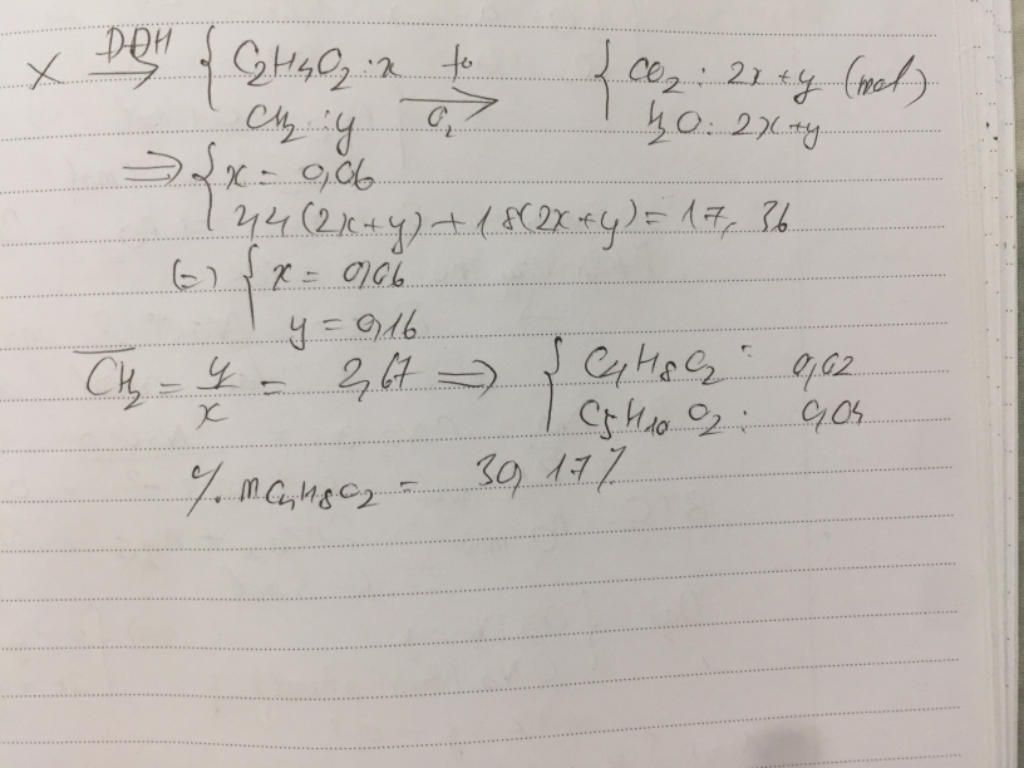 X ĐĐH → { C2H4O2 : x to → { CO2 : 2x+y (mol)
CH2 : y O2 H2O : 2x+y
⇒ { x = 0,06
44(2x+y) + 18(2x+y) = 17,36
(=) { x = 0,06
y = 0,16
CH2 = y/x = 2,67 ⇒ { C4H8O2 : 0,02
C5H10O2 : 0,04
% mC4H8O2 = 30,17%